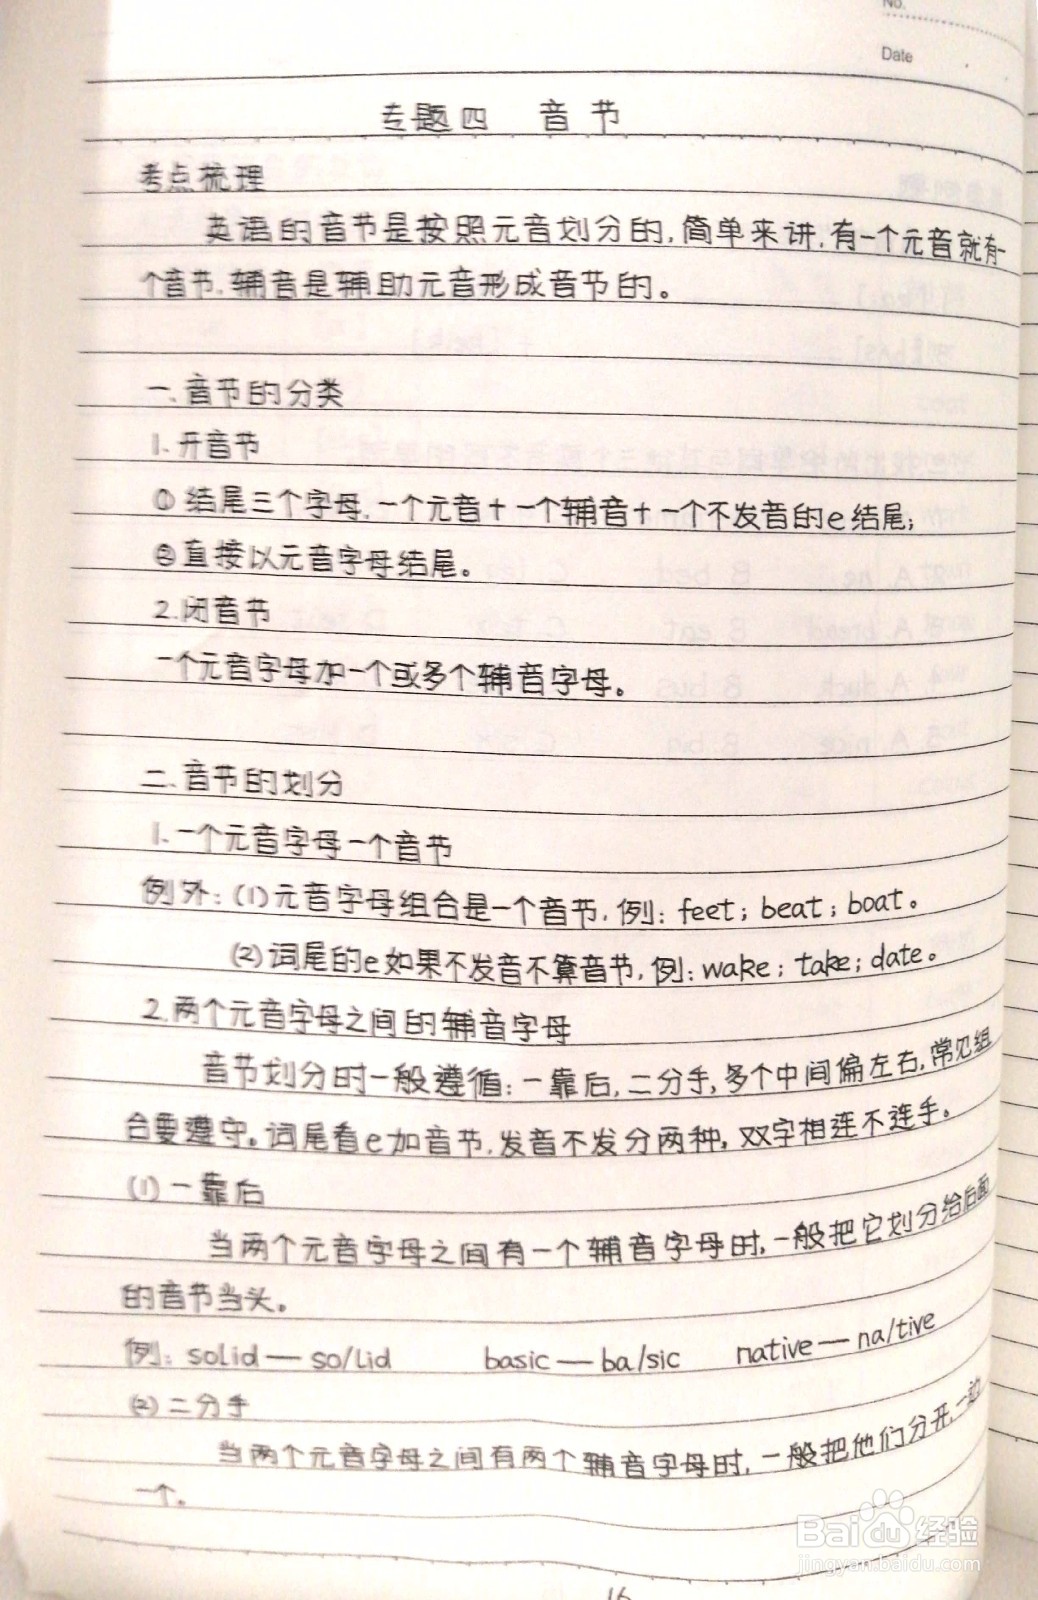 No.
Date
专题四 音节
考点梳理
英语的音节是按照元音划分的,简单来讲,有一个元音就有一
个音节,辅音是辅助元音形成音节的。
一、音节的分类
1.开音节
①结尾三个字母,一个元音+一个辅音+一个不发音的e结尾;
②直接以元音字母结尾。
2.闭音节
一个元音字母加一个或多个辅音字母。
二、音节的划分
1.一个元音字母一个音节
例外:(1)元音字母组合是一个音节,例:feet;beat;boat。
(2)词尾的e如果不发音不算音节,例:wake;take;date。
2.两个元音字母之间的辅音字母
音节划分时一般遵循:一靠后,二分手,多个中间偏左右,常见组
合要遵守。词尾看e加音节,发音不发分两种,双字相连不连手。
(1)一靠后
当两个元音字母之间有一个辅音字母时,一般把它划分给后面
的音节当头。
例:solid—so/lid basic—ba/sic native—na/tive
(2)二分手
当两个元音字母之间有两个辅音字母时,一般把他们分开,一边
一个。
16
Baidu经验
jingyan.baidu.com